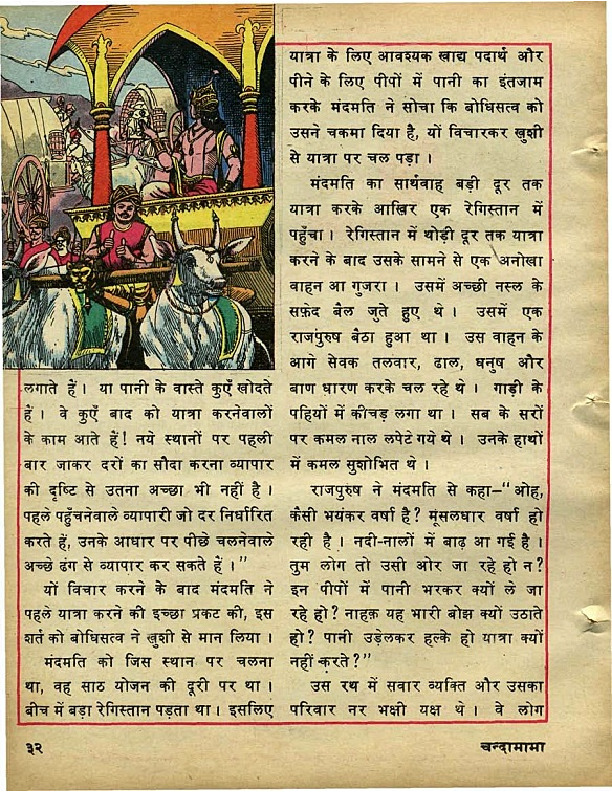 लगाते हैं। या पानी के वास्ते कुएँ खोदते
हैं। वे कुएँ बाद को यात्रा करनेवालों
के काम आते हैं! नये स्थानों पर पहली
बार जाकर दरों का सौदा करना व्यापार
की दृष्टि से उतना अच्छा भी नहीं है।
पहले पहुँचनेवाले व्यापारी जो दर निर्धारित
करते हैं, उनके आधार पर पीछे चलनेवाले
अच्छे ढंग से व्यापार कर सकते हैं।”
यों विचार करने के बाद मंदमति ने
पहले यात्रा करने की इच्छा प्रकट की, इस
शर्त को बोधिसत्व ने खुशी से मान लिया।
मंदमति को जिस स्थान पर चलना
था, वह साठ योजन की दूरी पर था।
बीच में बड़ा रेगिस्तान पड़ता था। इसलिए
यात्रा के लिए आवश्यक खाद्य पदार्थ और
पीने के लिए पीपों में पानी का इंतजाम
करके मंदमति ने सोचा कि बोधिसत्व को
उसने चकमा दिया है, यों विचारकर खुशी
से यात्रा पर चल पड़ा।
मंदमति का सार्थवाह बड़ी दूर तक
यात्रा करके आखिर एक रेगिस्तान में
पहुँचा। रेगिस्तान में थोड़ी दूर तक यात्रा
करने के बाद उसके सामने से एक अनोखा
वाहन आ गुजरा। उसमें अच्छी नस्ल के
सफ़ेद बैल जुते हुए थे। उसमें एक
राजपुरुष बैठा हुआ था। उस वाहन के
आगे सेवक तलवार, ढाल, धनुष और
बाण धारण करके चल रहे थे। गाड़ी के
पहियों में कीचड़ लगा था। सब के सरों
पर कमल नाल लपेटे गये थे। उनके हाथों
में कमल सुशोभित थे।
राजपुरुष ने मंदमति से कहा–“ओह,
कैसी भयंकर वर्षा है? मूसलधार वर्षा हो
रही है। नदी-नालों में बाढ़ आ गई है।
तुम लोग तो उसी ओर जा रहे हो न?
इन पीपों में पानी भरकर क्यों ले जा
रहे हो? नाहक़ यह भारी बोझ क्यों उठाते
हो? पानी उड़ेलकर हल्के हो यात्रा क्यों
नहीं करते?”
उस रथ में सवार व्यक्ति और उसका
परिवार नर भक्षी यक्ष थे। वे लोग
३२
चन्दामामा